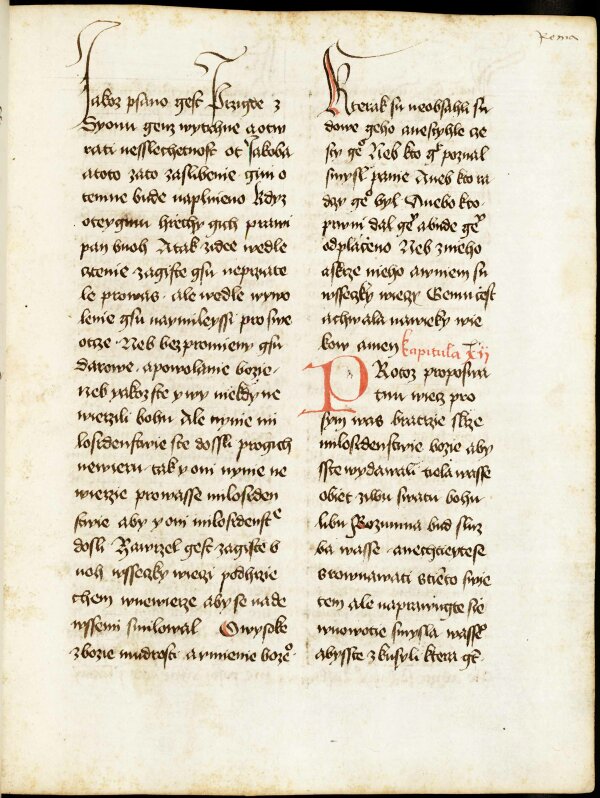 Roma
Jakoz psano gest Przigde z
Syonu genz wytrhne a otw
rati nesslechetnost ot Jakoba
a toto zato zaslibenie gim o
temne bude naplnieno kdyz
oteygmu hrziechy gich prawi
pan buoh A tak zidee wedle
cztenie zagiste gsu neprzate
le prowas ale wedle wywo
lenie gsu naymileyssi pro swe
otcze Neb bez promieny gsu
darowe a powolanie bozie
neb yakozste y wy niekdy ne
wierzili bohu Ale nynie mi
losrdenstwie ste dossli progich
newieru tak y oni nynie ne
wierzie prowasse milosrden
stwie aby y oni milosrdenste
dosli Zawrzel gest zagiste b
uoh wsseczky wieczi podhrzie
chem wnewierze aby se nade
wssemi smilowal O wysoke
zbozie mudrosti a umienie boze
kterak su neobsahli su
dowe geho a nestyhle ce
sty ge Neb kto gt poznal
smysl panie A neb kto ra
day ge byl Anebo kto
prwni dal ge a bude ge
odplaczeno Neb znieho
a skrze nieho a wniem su
wsseczky wieczy Gemuz cest
a chwala naweky wie
kow amen kapitula xij
Protoz proposwa
tnu wiecz pro
sym was bratrzie skrze
milosrdenstwie bozie aby
sste wydawali tiela wasse
obiet ziwu swatu bohu
libu Rozumna bud sluz
ba wasse a nechtieytese
srownawati stiemto swie
tem ale naprawugte sie
wnowotie smysla wasse
abysste zkusyli ktera ge